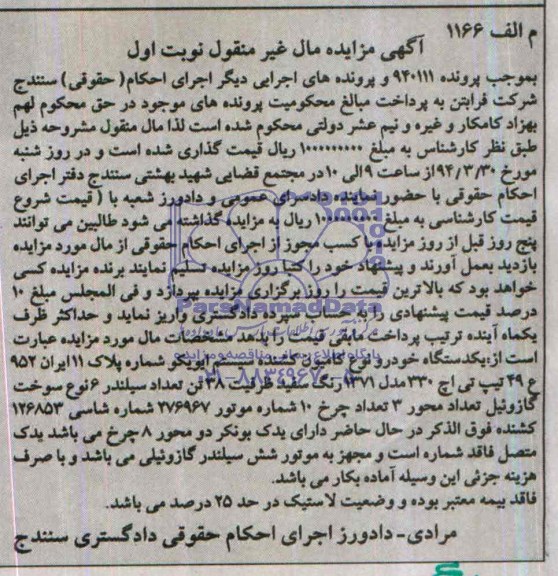 م الف ۱۱۶۶
آگهی مزایده مال غیر منقول نوبت اول
بموجب پرونده ۹۴۰۱۱۱ و پرونده های اجرایی دیگر اجرای احکام( حقوقی) سنندج
شرکت فرابتن به پرداخت مبالغ محکومیت پرونده های موجود در حق محکوم لهم
بهزاد کامکار و غیره و نیم عشر دولتی محکوم شده است لذا مال منقول مشروحه ذیل
طبق نظر کارشناس به مبلغ ۱۰۰۰۰۰۰۰۰۰ ریال قیمت گذاری شده است و در روز شنبه
مورخ ۹۴/۳/۳۰ از ساعت ۹ الی ۱۰ در مجتمع قضایی شهید بهشتی سنندج دفتر اجرای
احکام حقوقی با حضور نماینده دادسرای عمومی و دادورز شعبه با ( قیمت شروع
قیمت کارشناسی به مبلغ ریال به مزایده گذاشته می شود طالبین می توانند
پنج روز قبل از روز مزایده با کسب مجوز از اجرای احکام حقوقی از مال مورد مزایده
بازدید بعمل آورند و پیشنهاد خود را کتبا روز مزایده تسلیم نمایند برنده مزایده کسی
خواهد بود که بالاترین قیمت را روز برگزاری مزایده بپردازد و فی المجلس مبلغ ۱۰
درصد قیمت پیشنهادی را به حساب سپرده دادگستری واریز نماید و حداکثر ظرف
یکماه آینده ترتیب پرداخت مابقی قیمت را بدهد مشخصات مال مورد مزایده عبارت
است از:یکدستگاه خودرو نوع کامیون کشنده ایویکو شماره پلاک ۱۱ ایران ۹۵۲
ع ۴۹ تیپ تی اچ ۳۳۰ مدل ۱۳۷۱ رنگ سفید ظرفیت ۳۸ تن تعداد سیلندر ۶ نوع سوخت
گازوئیل تعداد محور ۳ تعداد چرخ ۱۰ شماره موتور ۲۷۶۹۶۷ شماره شاسی ۱۲۶۸۵۳
کشنده فوق الذکر در حال حاضر دارای یدک بونکر دو محور ۸ چرخ می باشد یدک
متصل فاقد شماره است و مجهز به موتور شش سیلندر گازوئیلی می باشد و با صرف
هزینه جزئی این وسیله آماده بکار می باشد.
فاقد بیمه معتبر بوده و وضعیت لاستیک در حد ۲۵ درصد می باشد.
مرادی- دادورز اجرای احکام حقوقی دادگستری سنندج
ParsNamadData
پایگاه اطلاع رسانی مناقصه و مزایده
۰۲۱-۸۸۳۴۹۶۷۰